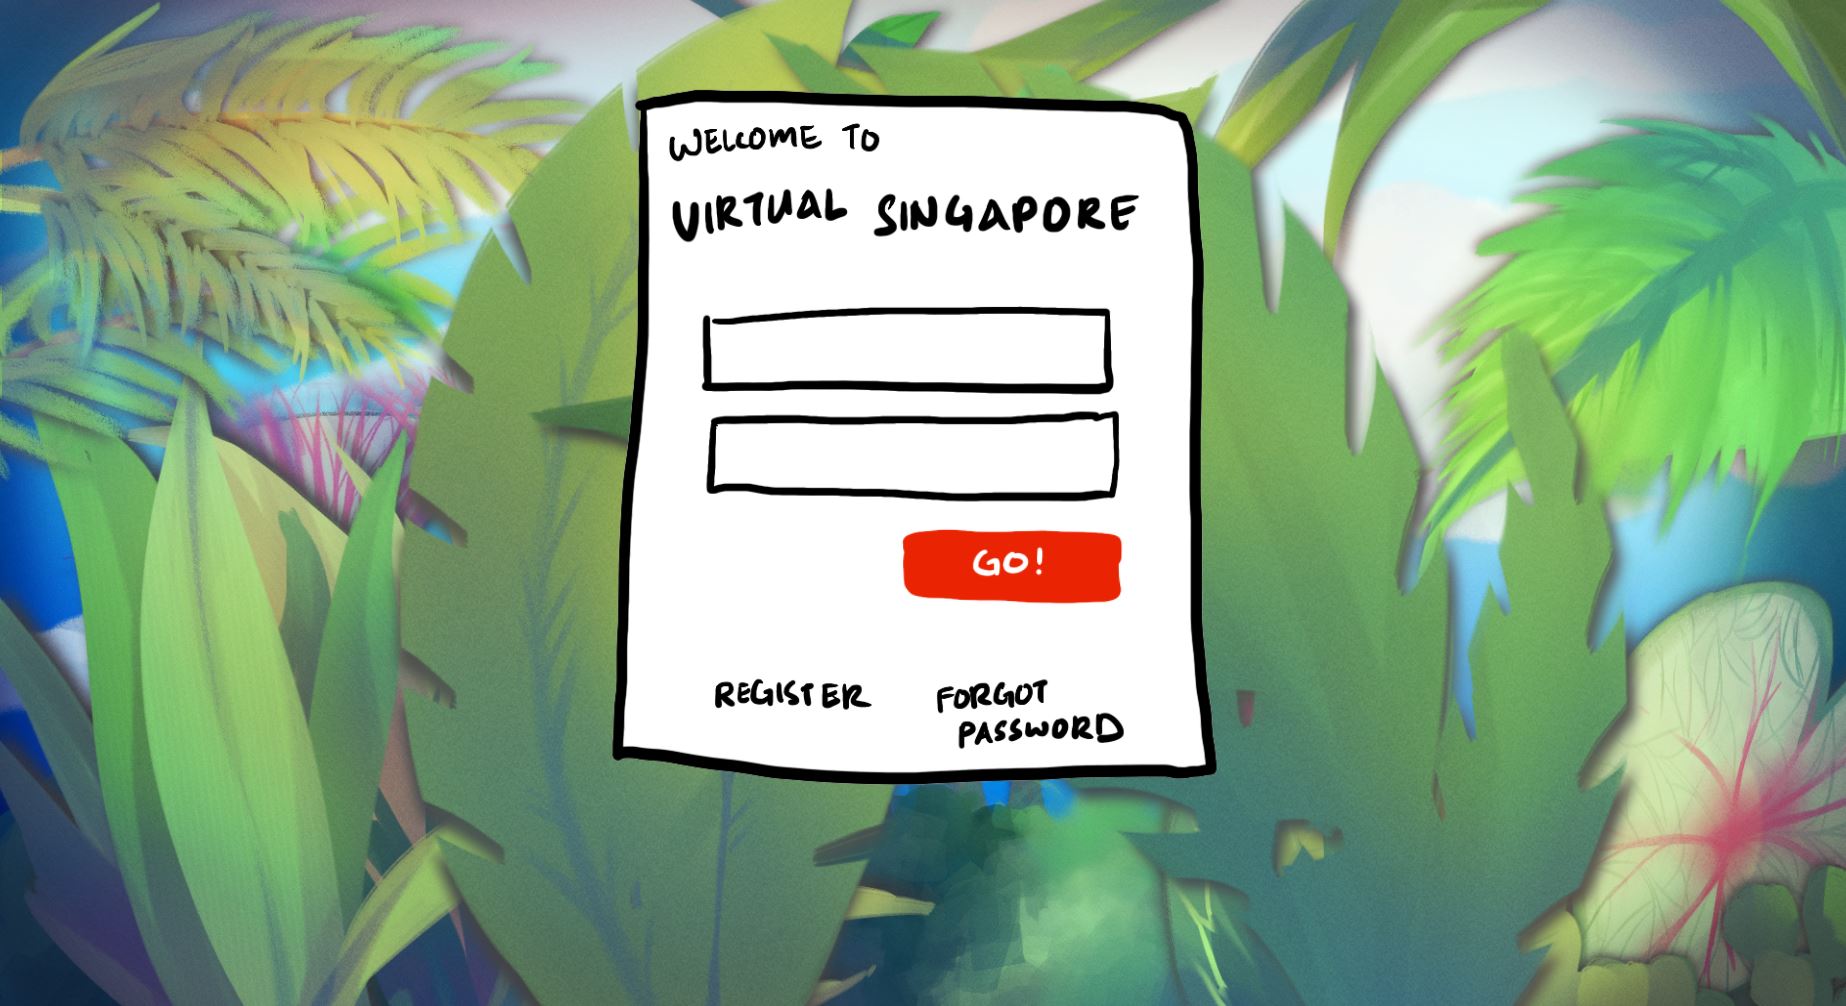 WELCOME TO
VIRTUAL SINGAPORE
GO!
REGISTER
FORGOT
PASSWORD